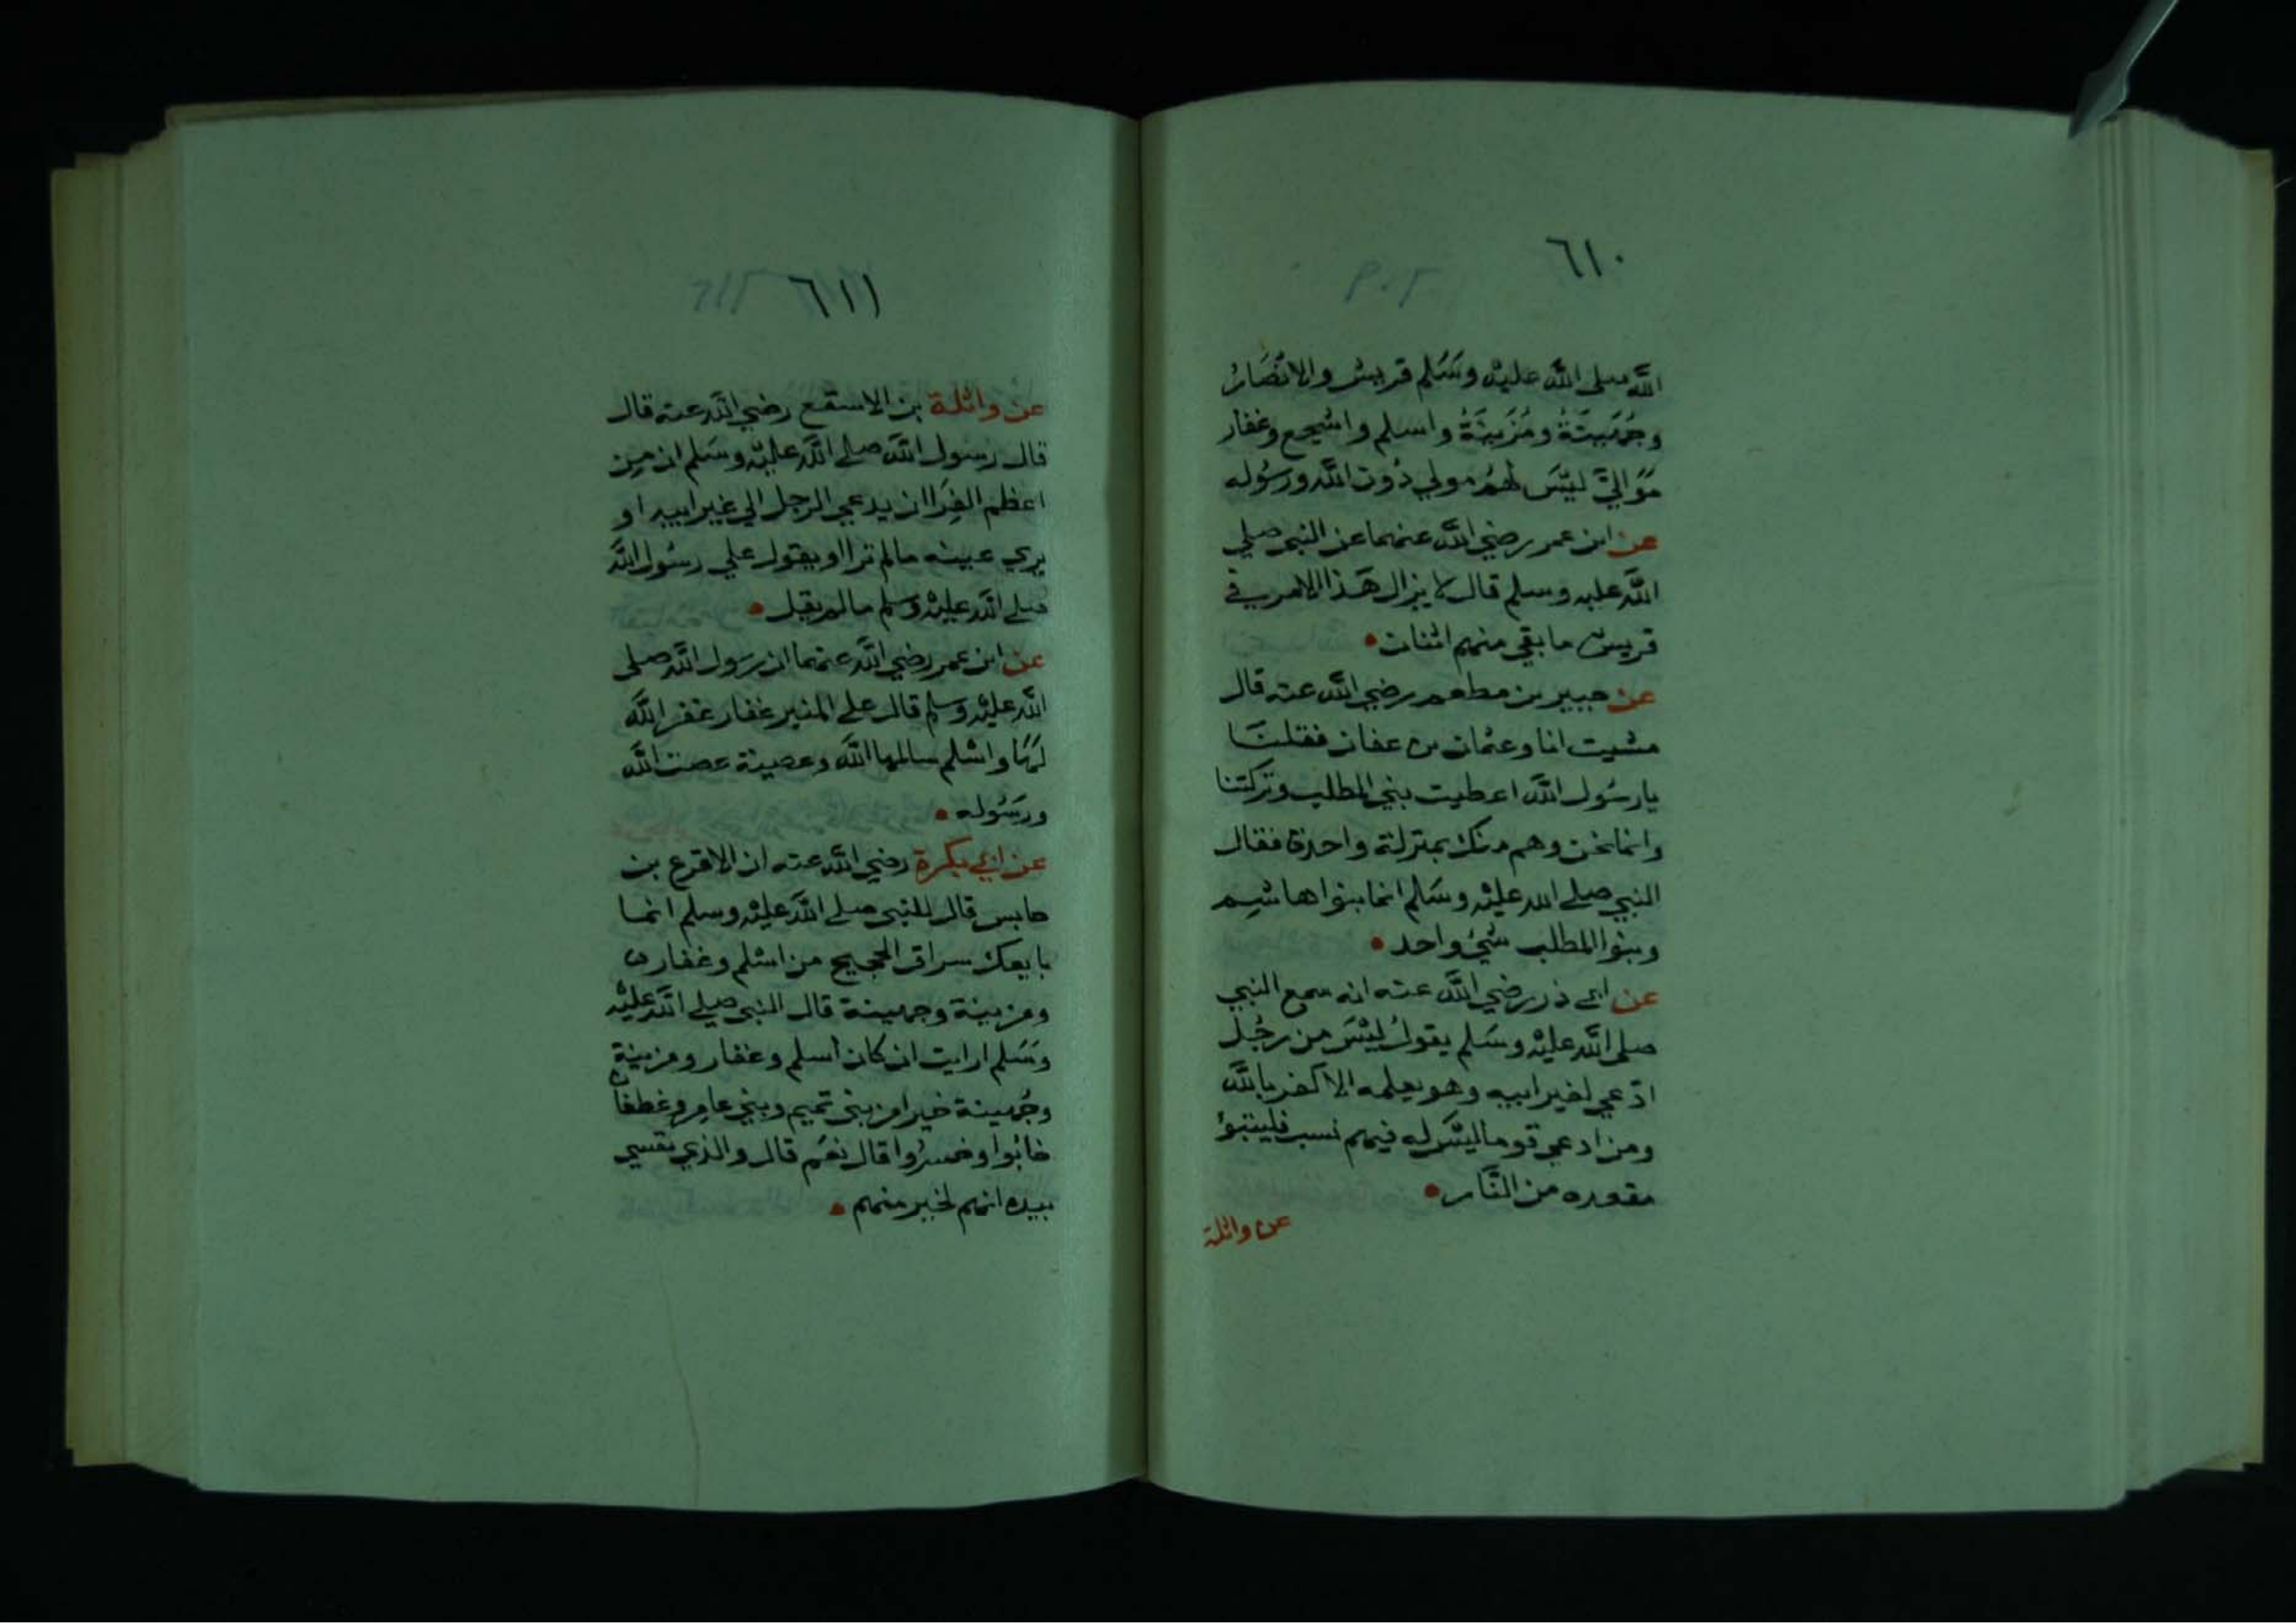 ٦١٠
الله صلى الله عليه وسلم قريش والانصار
وجهينة ومزينة واسلم واشجع وغفار
موالي ليس لهم مولي دون الله ورسوله
عن ابن عمر رضي الله عنهما عن النبي صلي
الله عليه وسلم قال لا يزال هذا الامر في
قريش ما بقي منهم اثنان
عن جبير بن مطعم رضي الله عنه قال
مشيت انا وعثمان بن عفان فقلنا
يا رسول الله اعطيت بني المطلب وتركتنا
وانما نحن وهم منك بمنزلة واحدة فقال
النبي صلي الله عليه وسلم انما بنوا هاشم
وبنوا المطلب شيء واحد
عن ابي ذر رضي الله عنه انه سمع النبي
صلى الله عليه وسلم يقول ليس من رجل
ادعي لغير ابيه وهو يعلمه الا كفر بالله
ومن ادعي قوما ليس له فيهم نسب فليتبؤ
مقعده من النار
عن واثلة
٦١١
عن واثلة بن الاسقع رضي الله عنه قال
قال رسول الله صلي الله عليه وسلم ان من
اعظم الفرا ان يدعي الرجل الي غير ابيه او
يري عينه مالم ترا او يقول علي رسول الله
صلي الله عليه وسلم مالم يقل
عن ابن عمر رضي الله عنهما ان رسول الله صلى
الله عليه وسلم قال علي المنبر غفار غفر الله
لها واسلم سالمها الله وعصية عصت الله
ورسوله
عن ابي بكرة رضي الله عنه ان الاقرع بن
حابس قال للنبي صلي الله عليه وسلم انما
بايعك سراق الحجيج من اسلم وغفار
ومزينة وجهينة قال النبي صلي الله عليه
وسلم ارايت ان كان اسلم وغفار ومزينة
وجهينة خيرا من بني تميم وبني عامر وغطفان
خابوا وخسروا قال نعم قال والذي نفسي
بيده انهم لخير منهم